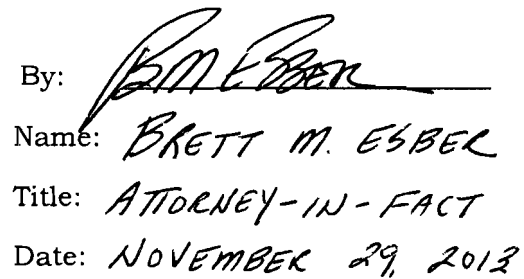 By: BM Esber
Name: BRETT M. ESBER
Title: ATTORNEY-IN-FACT
Date: NOVEMBER 29, 2013